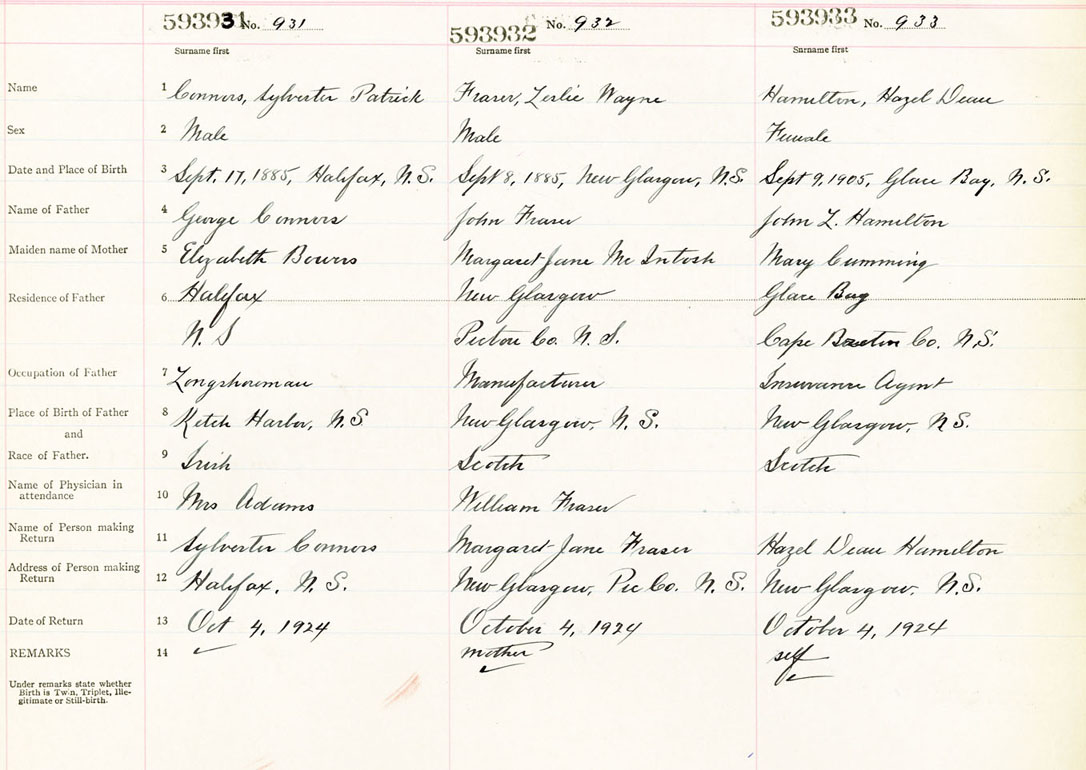 593931 No. 931 593932 No. 932 593933 No. 933
Surname first Surname first Surname first
Name 1 Connors, Sylvester Patrick Fraser, Leslie Wayne Hamilton, Hazel Dean
Sex 2 Male Male Female
Date and Place of Birth 3 Sept. 17, 1885, Halifax, N.S. Sept 8, 1885, New Glasgow, N.S. Sept 9, 1905, Glace Bay, N.S.
Name of Father 4 George Connors John Fraser John L. Hamilton
Maiden name of Mother 5 Elizabeth Bowers Margaret Jane McIntosh Mary Cumming
Residence of Father 6 Halifax New Glasgow Glace Bay
N.S Pictou Co. N.S. Cape Breton Co. N.S.
Occupation of Father 7 Longshoreman Manufacturer Insurance Agent
Place of Birth of Father 8 Ketch Harbor, N.S New Glasgow, N.S. New Glasgow, N.S.
and
Race of Father. 9 Irish Scotch Scotch
Name of Physician in
attendance 10 Mrs Adams William Fraser
Name of Person making
Return 11 Sylvester Connors Margaret Jane Fraser Hazel Dean Hamilton
Address of Person making
Return 12 Halifax, N.S. New Glasgow, Pic Co. N.S. New Glasgow, N.S.
Date of Return 13 Oct 4, 1924 October 4, 1924 October 4, 1924
REMARKS 14 mother self
Under remarks state whether
Birth is Twin, Triplet, Ille-
gitimate or Still-birth.